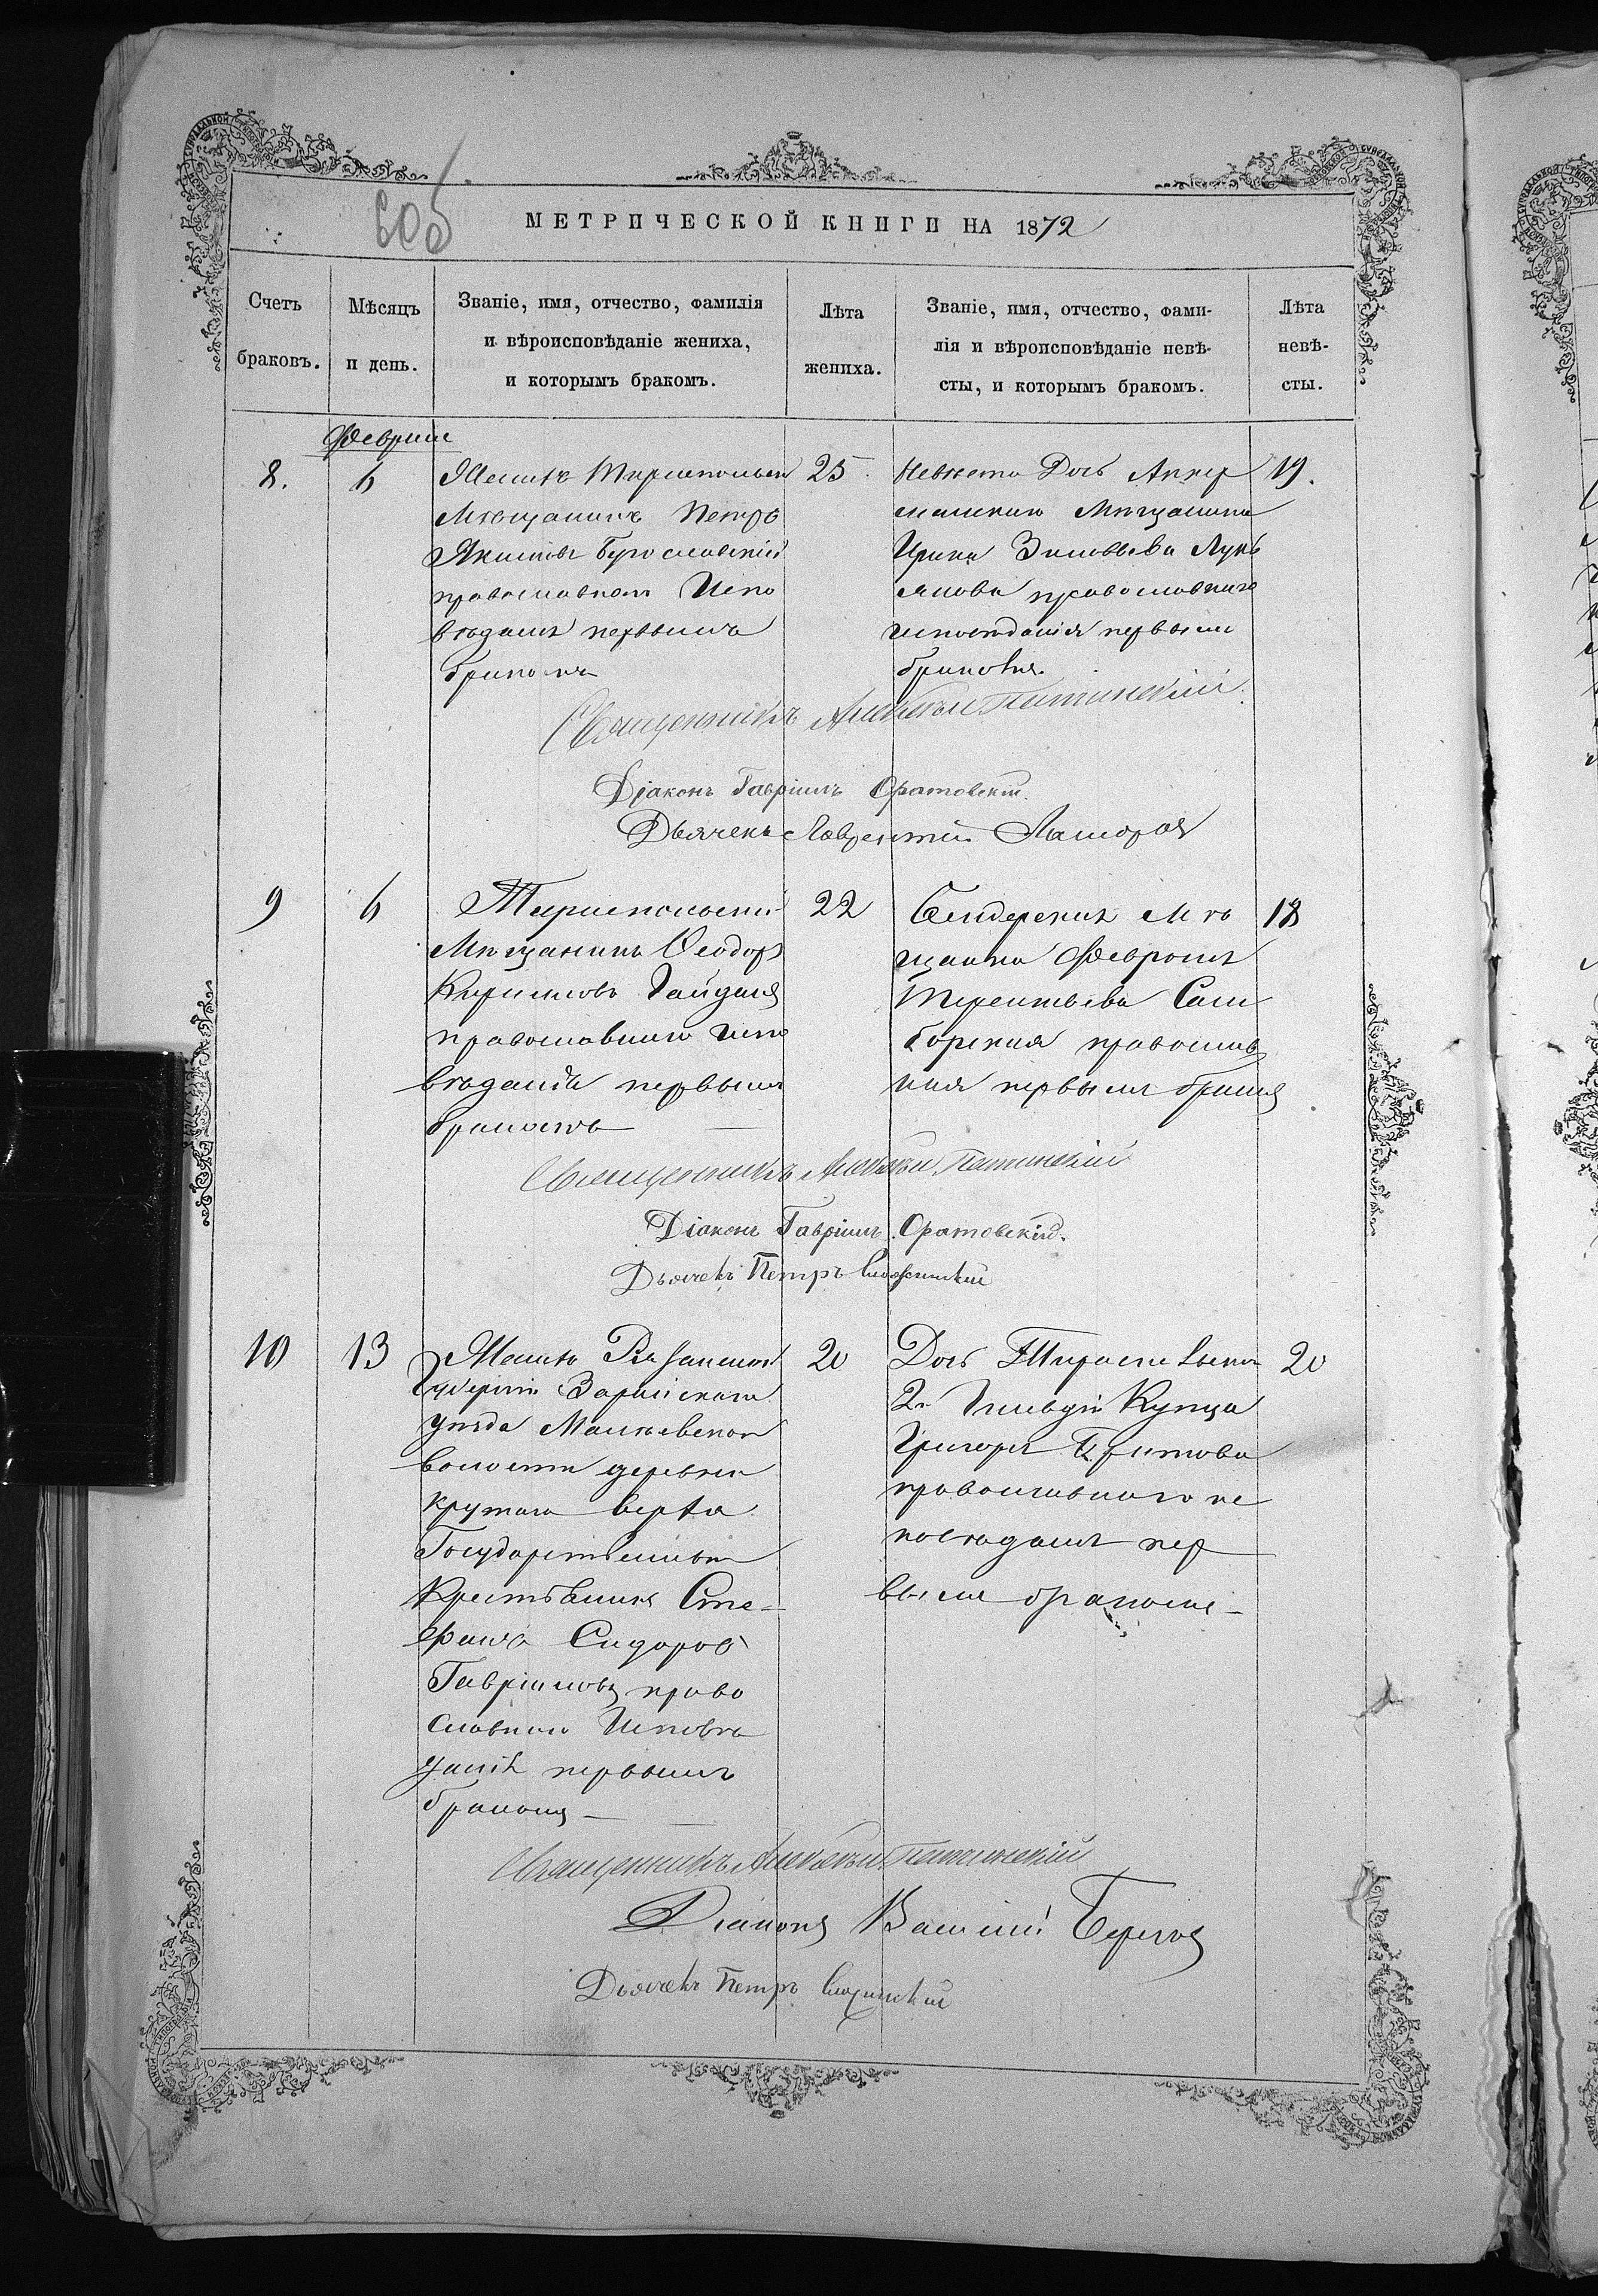 60об
МЕТРИЧЕСКОЙ КНИГИ НА 1872
Счетъ браковъ.
Мѣсяцъ и день.
Званіе, имя, отчество, фамилія
и вѣроисповѣданіе жениха,
и которымъ бракомъ.
Лѣта жениха.
Званіе, имя, отчество, фами-
лія и вѣроисповѣданіе невѣ-
сты, и которымъ бракомъ.
Лѣта невѣ-
сты.
Февраль
8.
6
Женихъ Тираспольскій
Мѣщанинъ Петръ
Якимовъ Бугославскій
православнаго Испо
вѣданія первымъ
бракомъ
25
Невѣста Дочь Аккер
манскаго Мѣщанина
Ирина Зиновьева Лукь
янова православнаго
исповѣданія первымъ
бракомъ.
19.
Священникъ Алексѣй
Діаконъ Гавріилъ Оратовскій.
Дьячекъ Лаврентій
9
6
Тираспольскій
Мѣщанинъ Ѳеодоръ
Кириловъ Гайдай
православнаго испо
вѣданія первымъ
бракомъ
22
Бендерская Мѣ
щанка Февронія
Терентьева Сам
борская православ
ная первымъ бракомъ
18
Священникъ Алексѣй
Діаконъ Гавріилъ Оратовскій.
Дьячекъ Петръ
10
13
Женихъ Рязанской
Губерніи Зарайскаго
уѣзда
волости деревни
Крутаго верха
Государственный
Крестьянинъ Сте-
фанъ Сидоровъ
Гавріиловъ право
славнаго Исповѣ
данія первымъ
бракомъ
20
Дочь Тираспольскаго
2й Гильдіи Купца
Григорія
православнаго ис
повѣданія пер
вымъ бракомъ
20
Священникъ Алексѣй
Діаконъ Василій
Дьячекъ Петръ